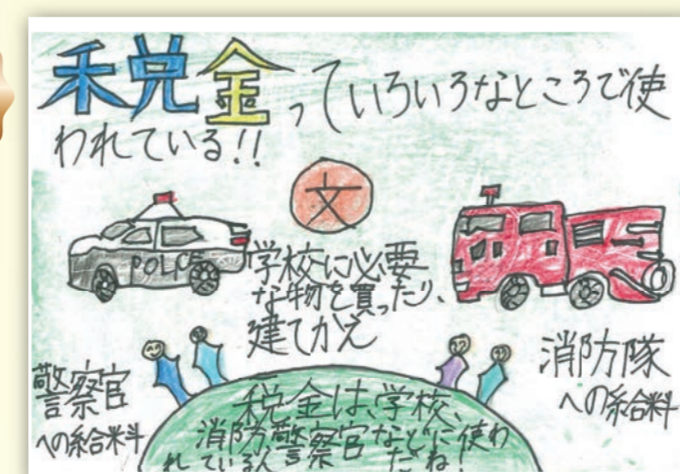 税金っていろいろなところで使
われている!!
文
POLICE
学校に必要
な物を買ったり、
建てかえ
警察官
への給料
消防隊
への給料
税金は、学校、
消防、警察官などに使わ
れているんだね!